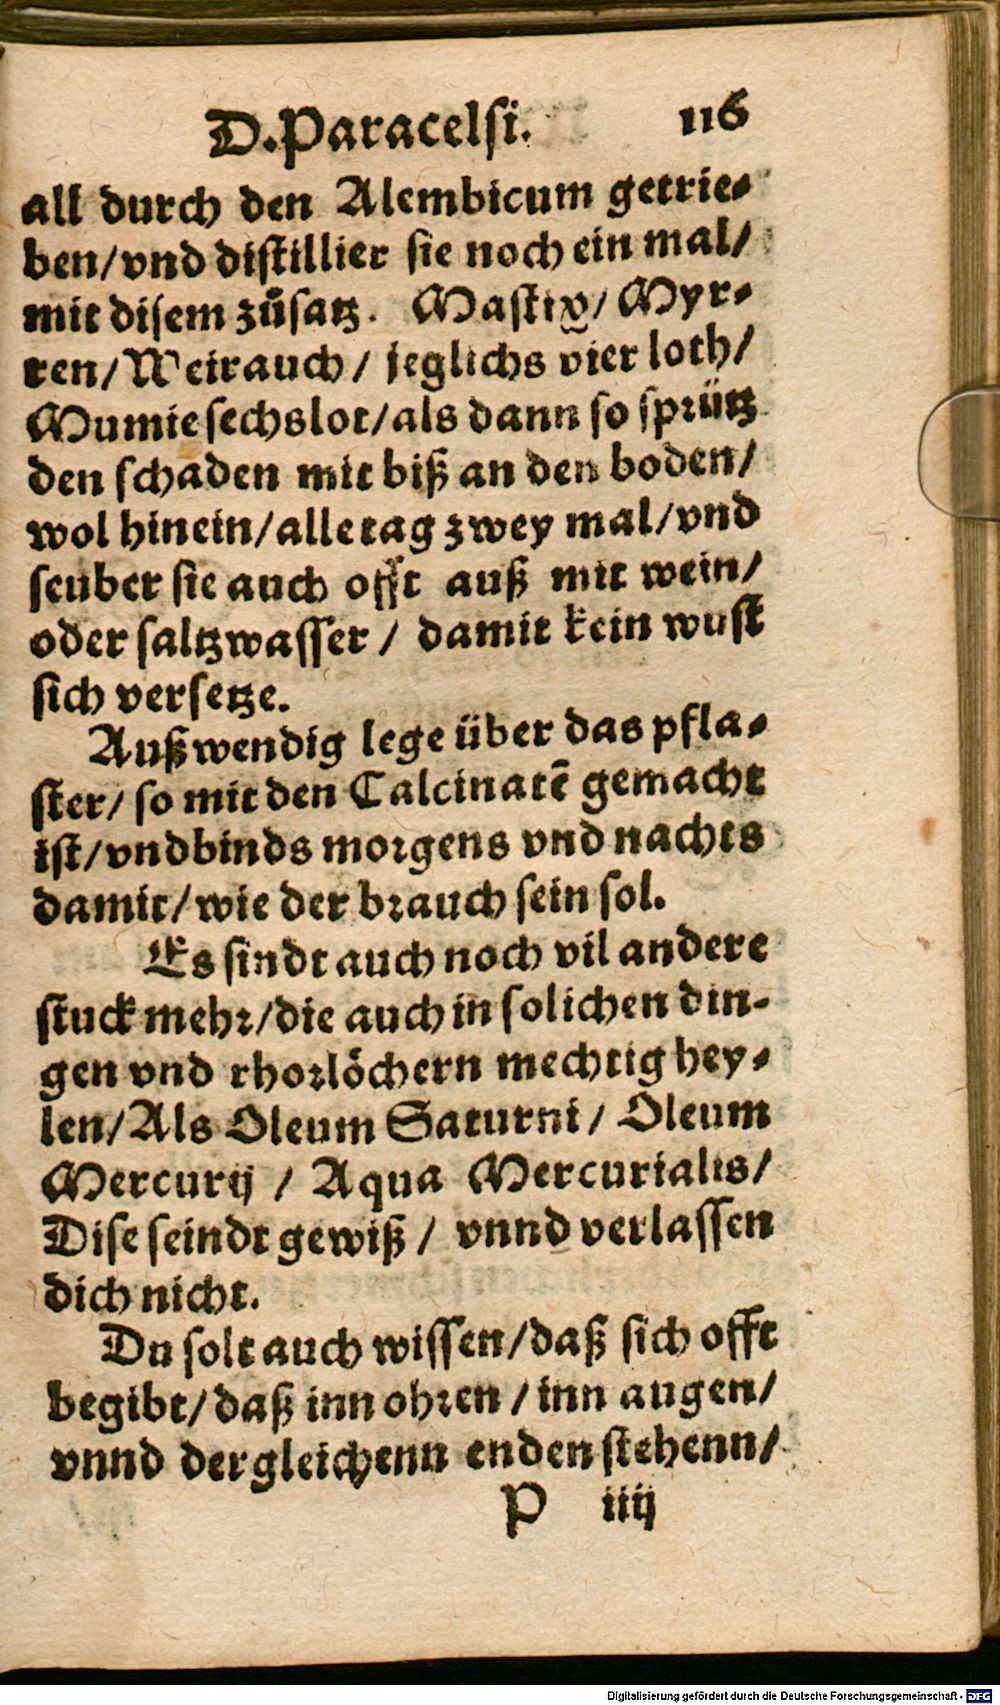 D. Paracelsi. 116
all durch den Alembicum getrie-
ben/vnd distillier sie noch ein mal/
mit disem zůsatz. Mastix/ Myr-
ren/Weirauch/ jeglichs vier loth/
Mumie sechs lot/als dann so sprütz
den schaden mit biß an den boden/
wol hinein/alle tag zwey mal/vnd
seuber sie auch offt auß mit wein/
oder saltzwasser/ damit kein wust
sich versetze.
Außwendig lege über das pfla-
ster/ so mit den Calcinatē gemacht
ist/vnd binds morgens vnd nachts
damit/wie der brauch sein sol.
Es sindt auch noch vil andere
stuck mehr/die auch in solichen din-
gen vnd rhorlöchern mechtig hey-
len/Als Oleum Saturni/ Oleum
Mercurij / Aqua Mercurialis/
Dise seindt gewiß / vnnd verlassen
dich nicht.
Du solt auch wissen/daß sich offt
begibt/daß inn ohren/inn augen/
vnnd dergleichenn enden stehenn/
P iiij
Digitalisierung gefördert durch die Deutsche Forschungsgemeinschaft - DFG